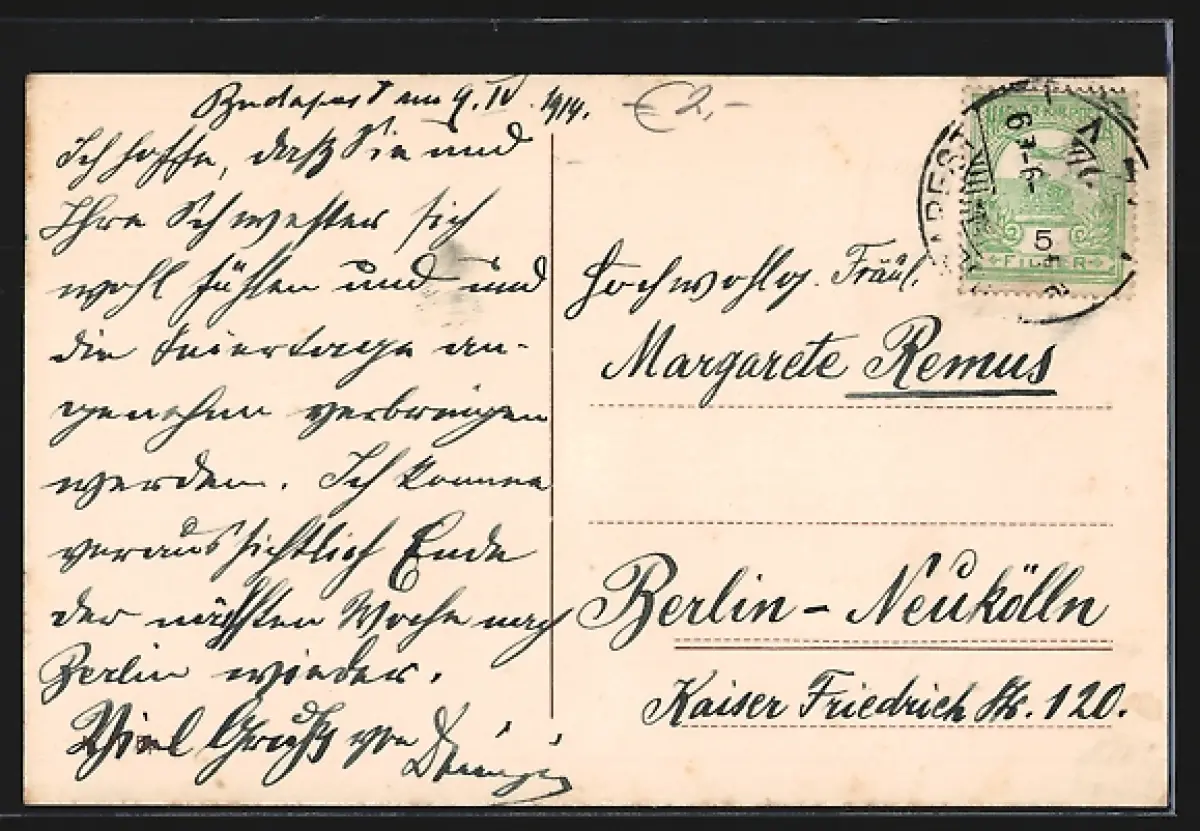 Budapest am 9. IV. 1914.
€ 2,-
Ich hoffe, daß Sie und
Ihre Schwester sich
wohl fühlen und und
die Feiertage an-
genehm verbringen
werden. Ich komme
voraussichtlich Ende
der nächsten Woche nach
Berlin wieder.
Viel Gruß von
BUDAPEST
5
FILLER
Hochwohlg. Fräul.
Margarete Remus
Berlin - Neukölln
Kaiser Friedrich Str. 120.